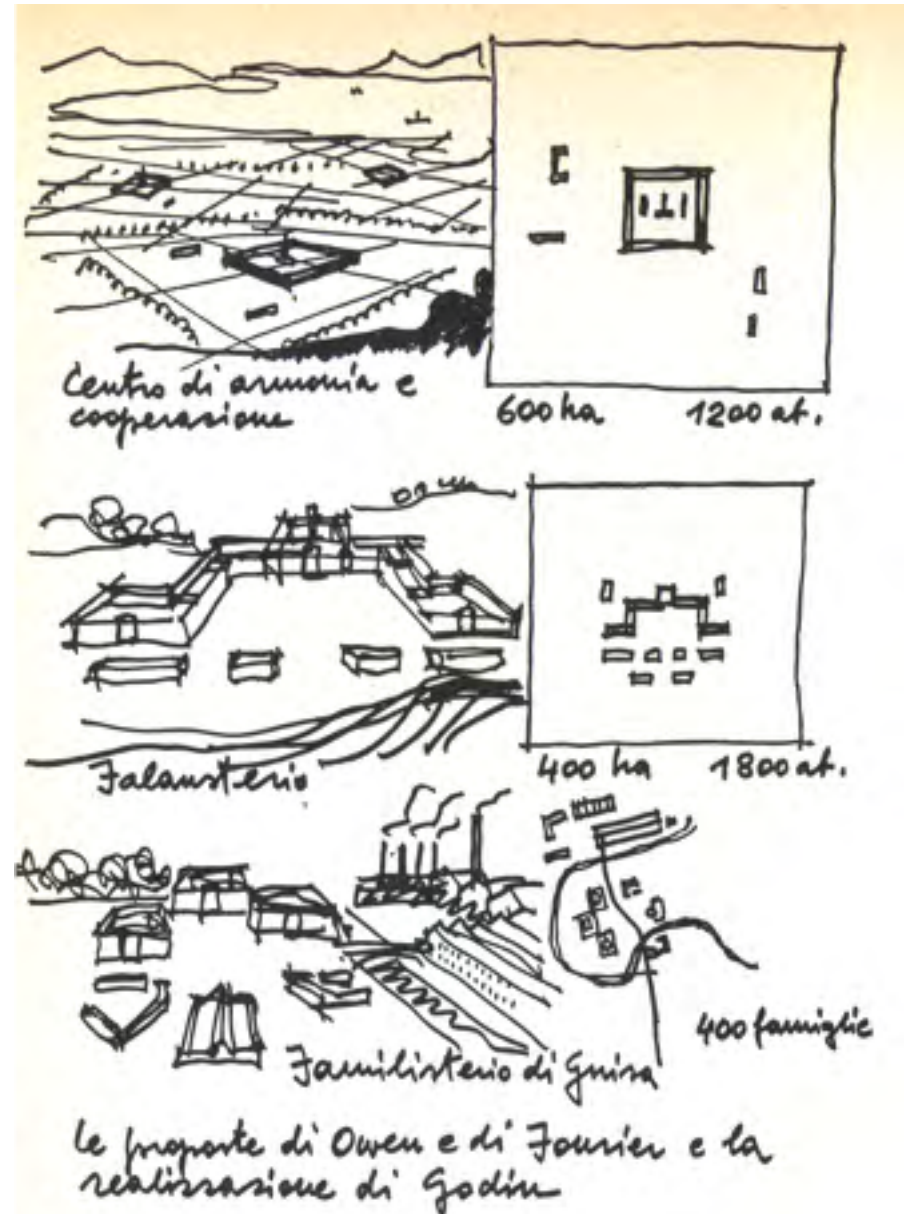 Centro di armonia e
cooperazione
600 ha 1200 ab.
Falansterio
400 ha 1800 ab.
400 famiglie
Familisterio di Guisa
le proposte di Owen e di Fourier e la
realizzazione di Godin